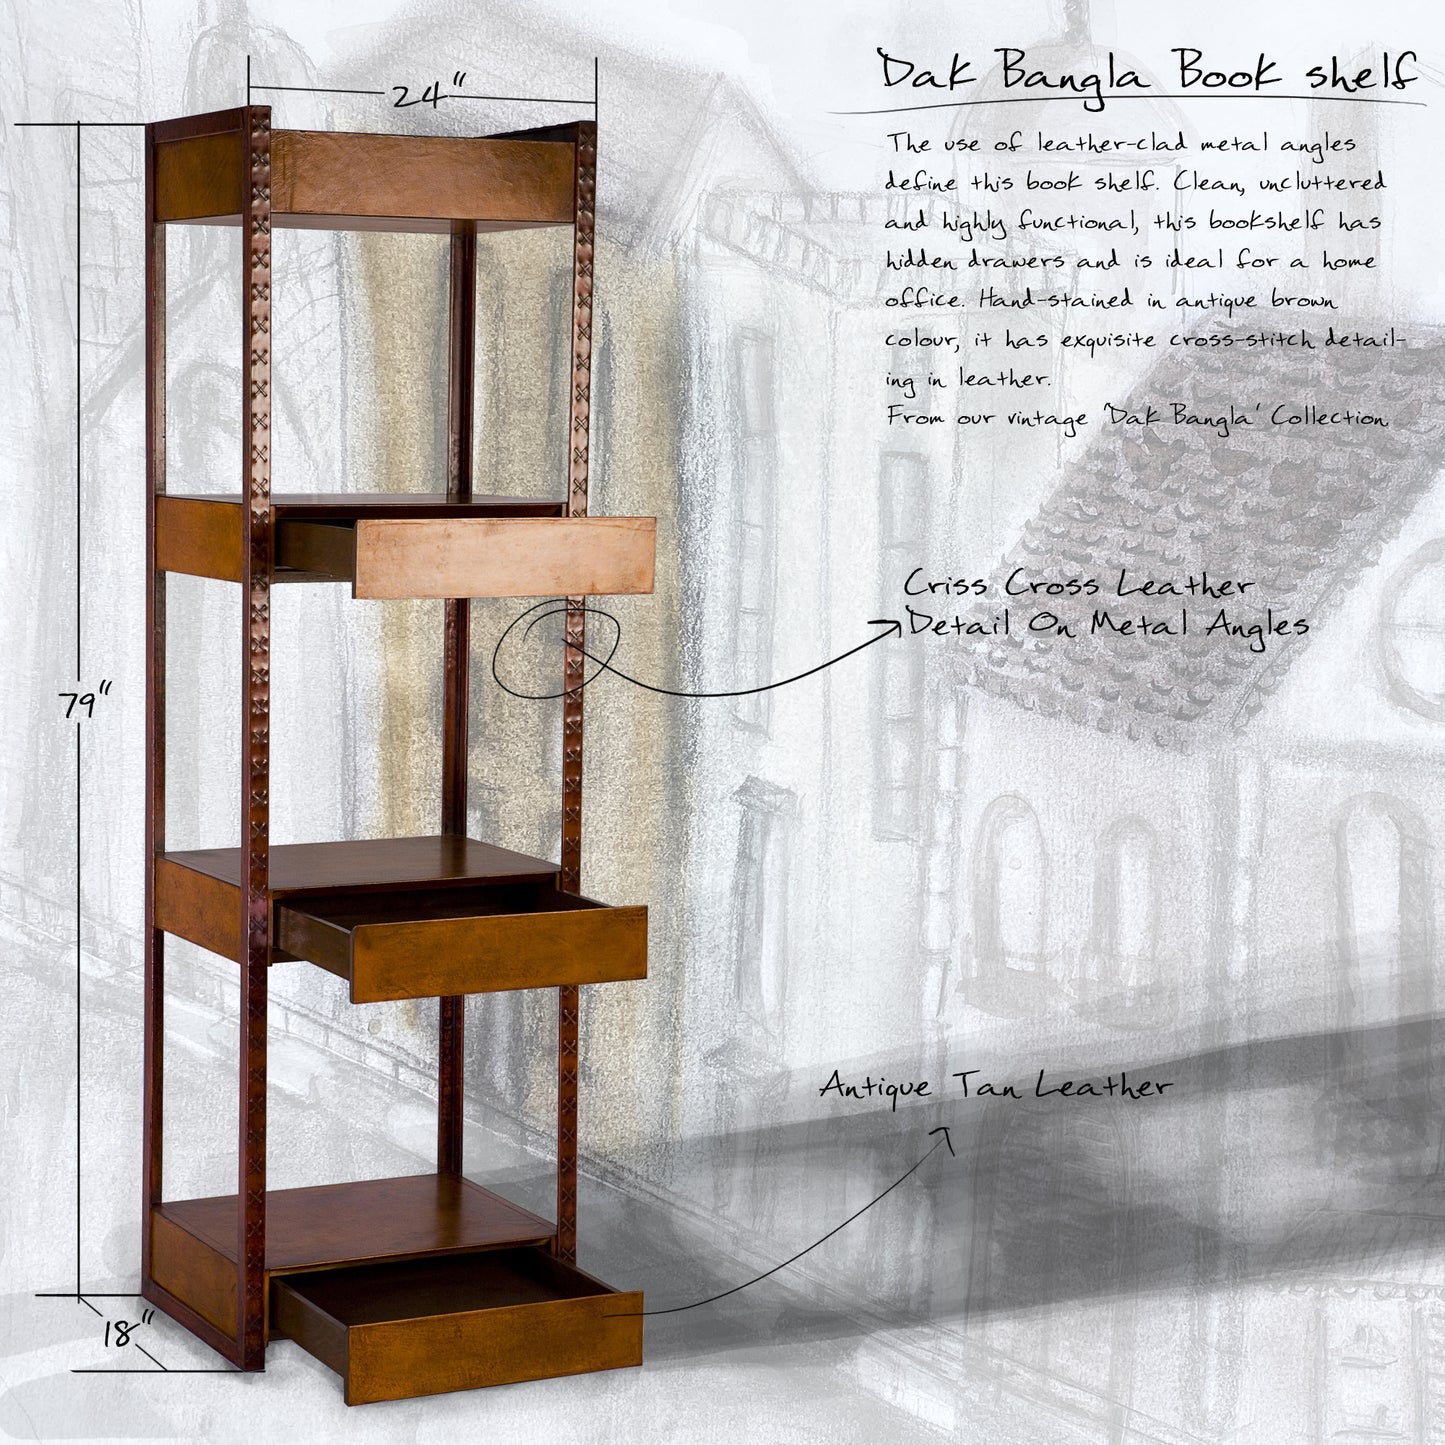 24"
Dak Bangla Book shelf
The use of leather-clad metal angles
define this book shelf. Clean, uncluttered
and highly functional, this bookshelf has
hidden drawers and is ideal for a home
office. Hand-stained in antique brown
colour, it has exquisite cross-stitch detail-
ing in leather.
From our vintage 'Dak Bangla' Collection.
Criss Cross Leather
Detail On Metal Angles
79"
Antique Tan Leather
18"